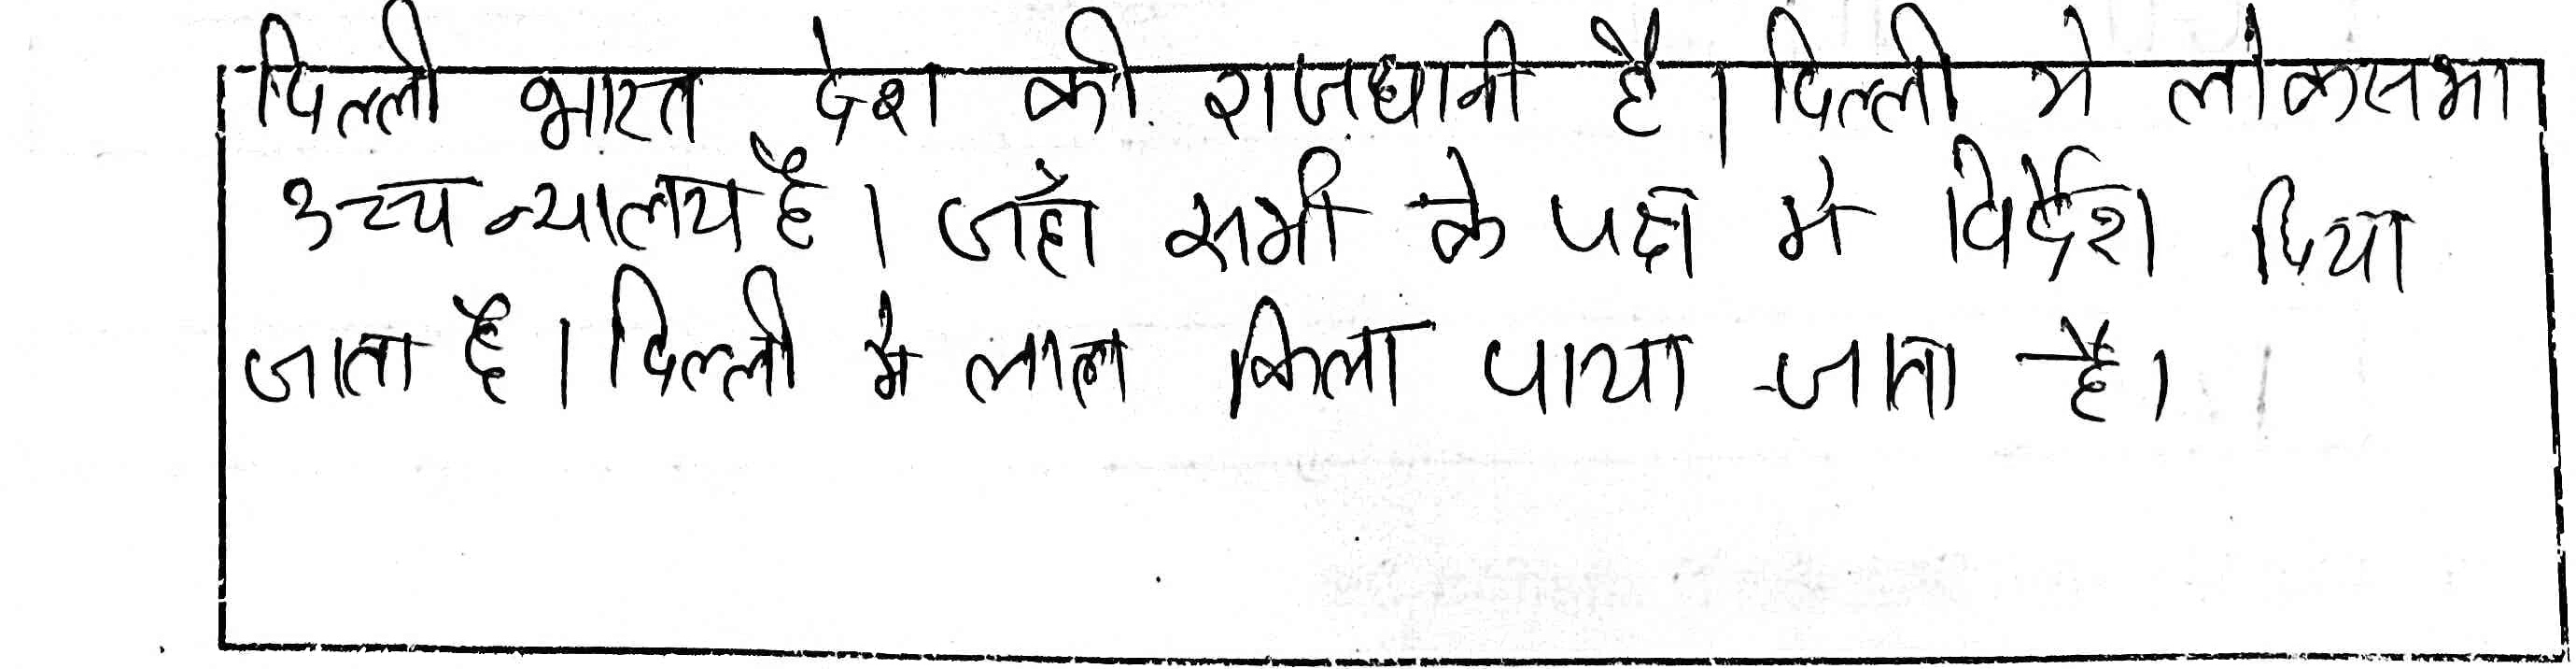 दिल्ली भारत देश की राजधानी है। दिल्ली मे लोकसभा
उच्च न्यालय है। जहाँ सभी के पक्ष मे निर्देश दिया
जाता है। दिल्ली मे लाल किला पाया जाता है।